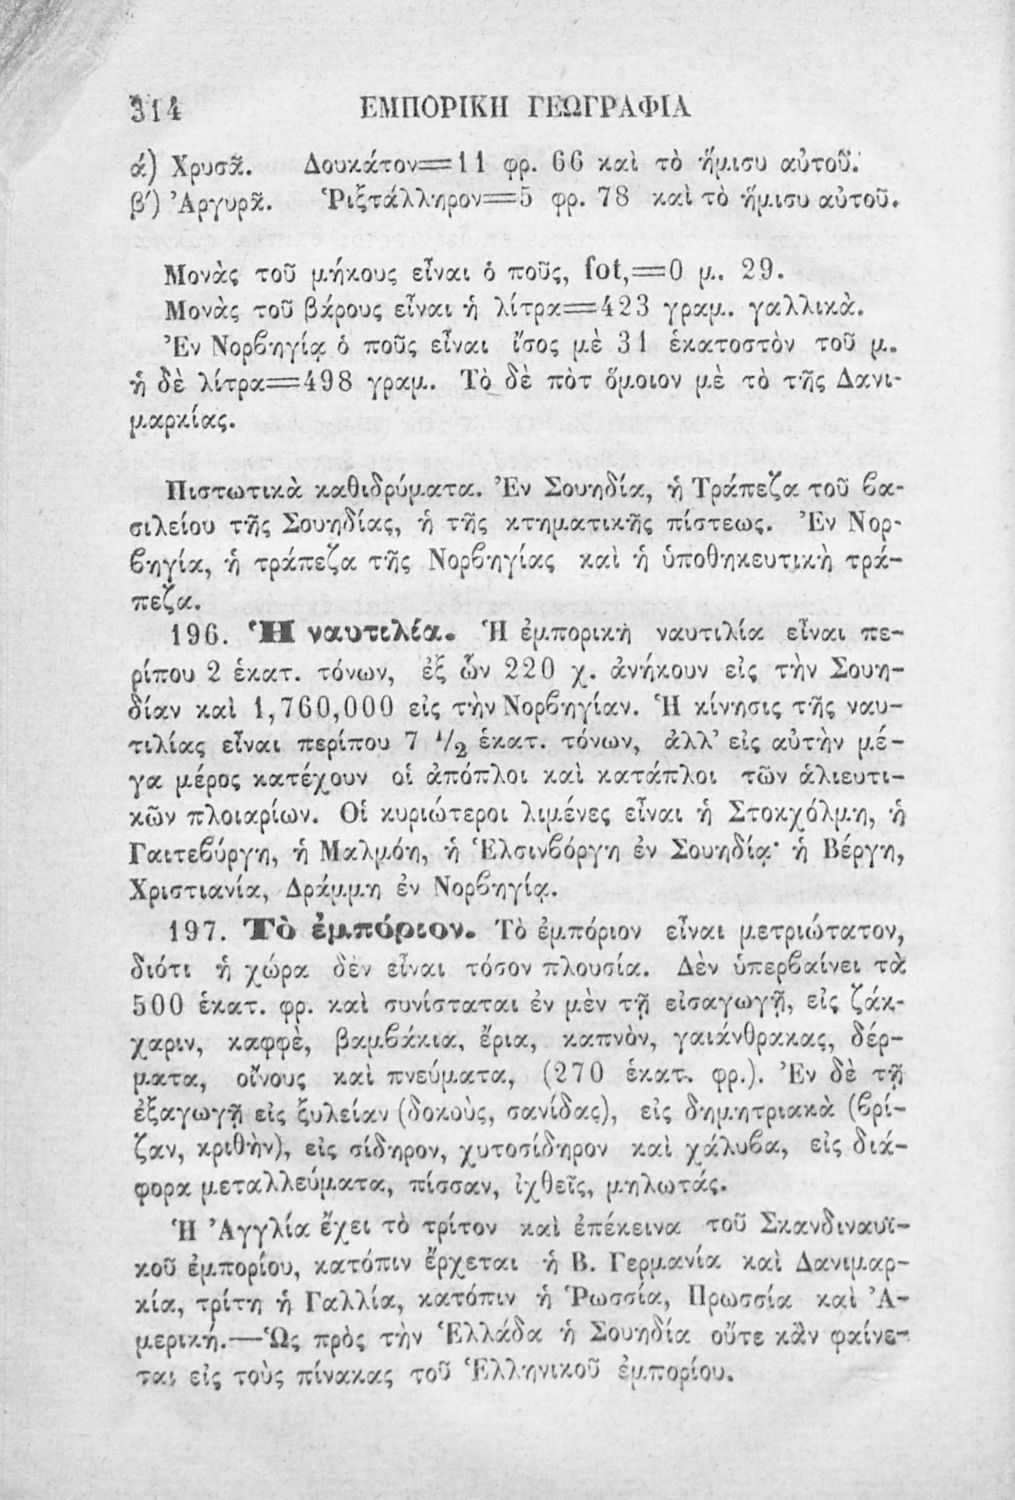 314 ΕΜΠΟΡΙΚΗ ΓΕΩΓΡΑΦΙΑ
ά) Χρυσᾶ. Δουκάτον=11 φρ. 66 καὶ τὸ ἥμισυ αὐτοῦ.
β′) Ἀργυρᾶ. Ῥιξτάλληρον=5 φρ. 78 καὶ τὸ ἥμισυ αὐτοῦ.
Μονὰς τοῦ μήκους εἶναι ὁ ποῦς, fot,=0 μ. 29.
Μονὰς τοῦ βάρους εἶναι ἡ λίτρα=423 γραμ. γαλλικὰ.
Ἐν Νορϐηγίᾳ ὁ ποῦς εἶναι ἴσος μὲ 31 ἑκατοστὸν τοῦ μ.
ἡ δὲ λίτρα=498 γραμ. Τὸ δὲ πὸτ ὅμοιον μὲ τὸ τῆς Δανι-
μαρκίας.
Πιστωτικὰ καθιδρύματα. Ἐν Σουηδίᾳ, ἡ Τράπεζα τοῦ ϐα-
σιλείου τῆς Σουηδίας, ἡ τῆς κτηματικῆς πίστεως. Ἐν Νορ-
ϐηγίᾳ, ἡ τράπεζα τῆς Νορϐηγίας καὶ ἡ ὑποθηκευτικὴ τρά-
πεζα.
196. Ἡ ναυτιλία. Ἡ ἐμπορικὴ ναυτιλία εἶναι πε-
ρίπου 2 ἑκατ. τόνων, ἐξ ὧν 220 χ. ἀνήκουν εἰς τὴν Σουη-
δίαν καὶ 1,760,000 εἰς τὴν Νορϐηγίαν. Ἡ κίνησις τῆς ναυ-
τιλίας εἶναι περίπου 7 1/2 ἑκατ. τόνων, ἀλλ' εἰς αὐτὴν μέ-
γα μέρος κατέχουν οἱ ἀπόπλοι καὶ κατάπλοι τῶν ἁλιευτι-
κῶν πλοιαρίων. Οἱ κυριώτεροι λιμένες εἶναι ἡ Στοκχόλμη, ἡ
Γαιτεϐύργη, ἡ Μαλμόη, ἡ Ἑλσινϐόργη ἐν Σουηδίᾳ· ἡ Βέργη,
Χριστιανία, Δράμμη ἐν Νορϐηγίᾳ.
197. Τὸ ἐμπόριον. Τὸ ἐμπόριον εἶναι μετριώτατον,
διότι ἡ χώρα δὲν εἶναι τόσον πλουσία. Δὲν ὑπερϐαίνει τὰ
500 ἑκατ. φρ. καὶ συνίσταται ἐν μὲν τῇ εἰσαγωγῇ, εἰς ζάκ-
χαριν, καφφὲ, βαμϐάκια, ἔρια, καπνὸν, γαιάνθρακας, δέρ-
ματα, οἴνους καὶ πνεύματα, (270 ἑκατ. φρ.). Ἐν δὲ τῇ
ἐξαγωγῇ εἰς ξυλείαν (δοκοὺς, σανίδας), εἰς δημητριακὰ (ϐρί-
ζαν, κριθὴν), εἰς σίδηρον, χυτοσίδηρον καὶ χάλυϐα, εἰς διά-
φορα μεταλλεύματα, πίσσαν, ἰχθεῖς, μηλωτάς.
Ἡ Ἀγγλία ἔχει τὸ τρίτον καὶ ἐπέκεινα τοῦ Σκανδιναυϊ-
κοῦ ἐμπορίου, κατόπιν ἔρχεται ἡ Β. Γερμανία καὶ Δανιμαρ-
κία, τρίτη ἡ Γαλλία, κατόπιν ἡ Ῥωσσία, Πρωσσία καὶ Ἀ-
μερική.—Ὡς πρὸς τὴν Ἑλλάδα ἡ Σουηδία οὔτε κἂν φαίνε-
ται εἰς τοὺς πίνακας τοῦ Ἑλληνικοῦ ἐμπορίου.